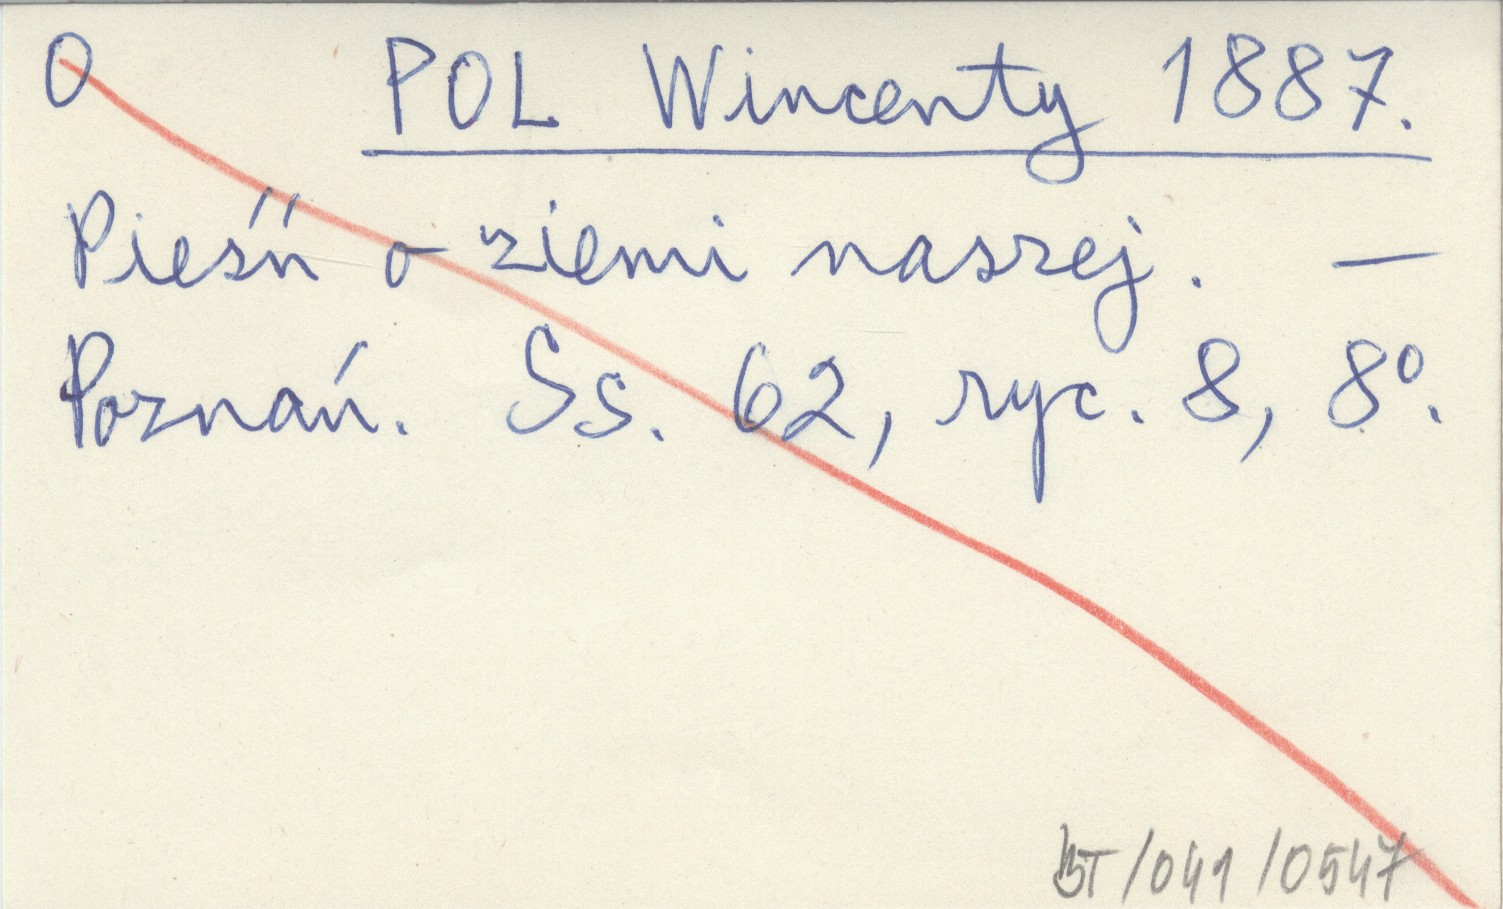 O POL Wincenty 1887.
Pieśń o ziemi naszej. —
Poznań. Ss. 62, ryc. 8, 8º.
BT/041/0547